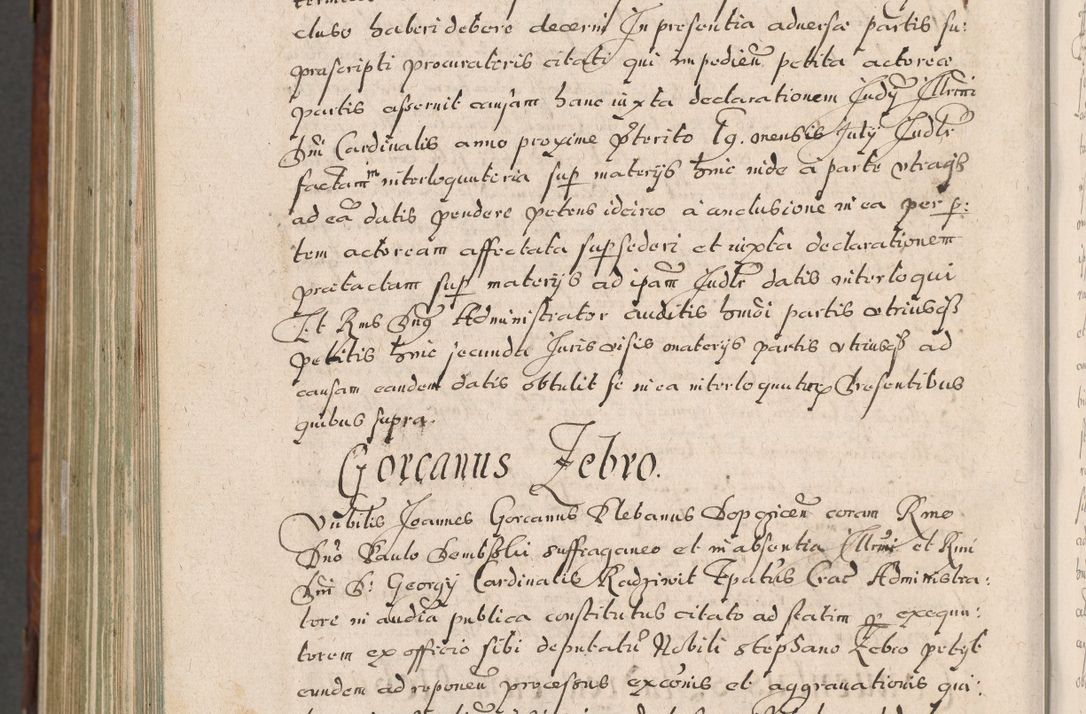 cluso haberi debere decerni In presentia adversæ partis su:
prascripti procuratoris citati qui impedien petita actoreæ
partis asseruit causam hanc iuxta declarationem Judy Illrmi
Dni Cardinalis anno proxime pterito 19. mensis July Judlr
factam in interloquutoria sup materijs hinc inde a parte utraqz
ad eã datis pendere petens idcirco a conclusione in ea per p:
tem actoream affectata supsederi et iuxta declarationem
prætactam sup materijs ad ipam Judlr datis interloqui
Et Rms Dnus Administrator auditis hmoi partis utriusqz
petitis hinc secundu Juris visis materijs partis utriusqz ad
causam eandem datis obtulit se in ea interloquuturũ Presentibus
quibus supra.
Gorcanus Zebro.
Nubilis Joannes Gorcanus Plebanus coram Rmo
Dno Paulo Dembskii suffraganeo et in absentia Illrmi et Rmi
Dni D: Georgij Cardinalis Radziwil Epatus Crac Administra:
tore in audia publica constitutus citato ad statim p exequu:
torem ex officio sibi deputatũ Nobili Stephano Zebro petijt
eundem ad reponen processus excõnis et aggravationis qui: